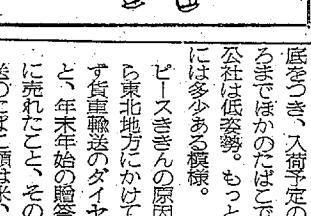 底をつき、入荷予定の
ろまでほかのたばこで
公社は低姿勢。もっと
には多少ある模様。
ピースききんの原因
ら東北地方にかけて
ず貨車輸送のダイヤ
と、年末年始の贈答
に売れたこと、その